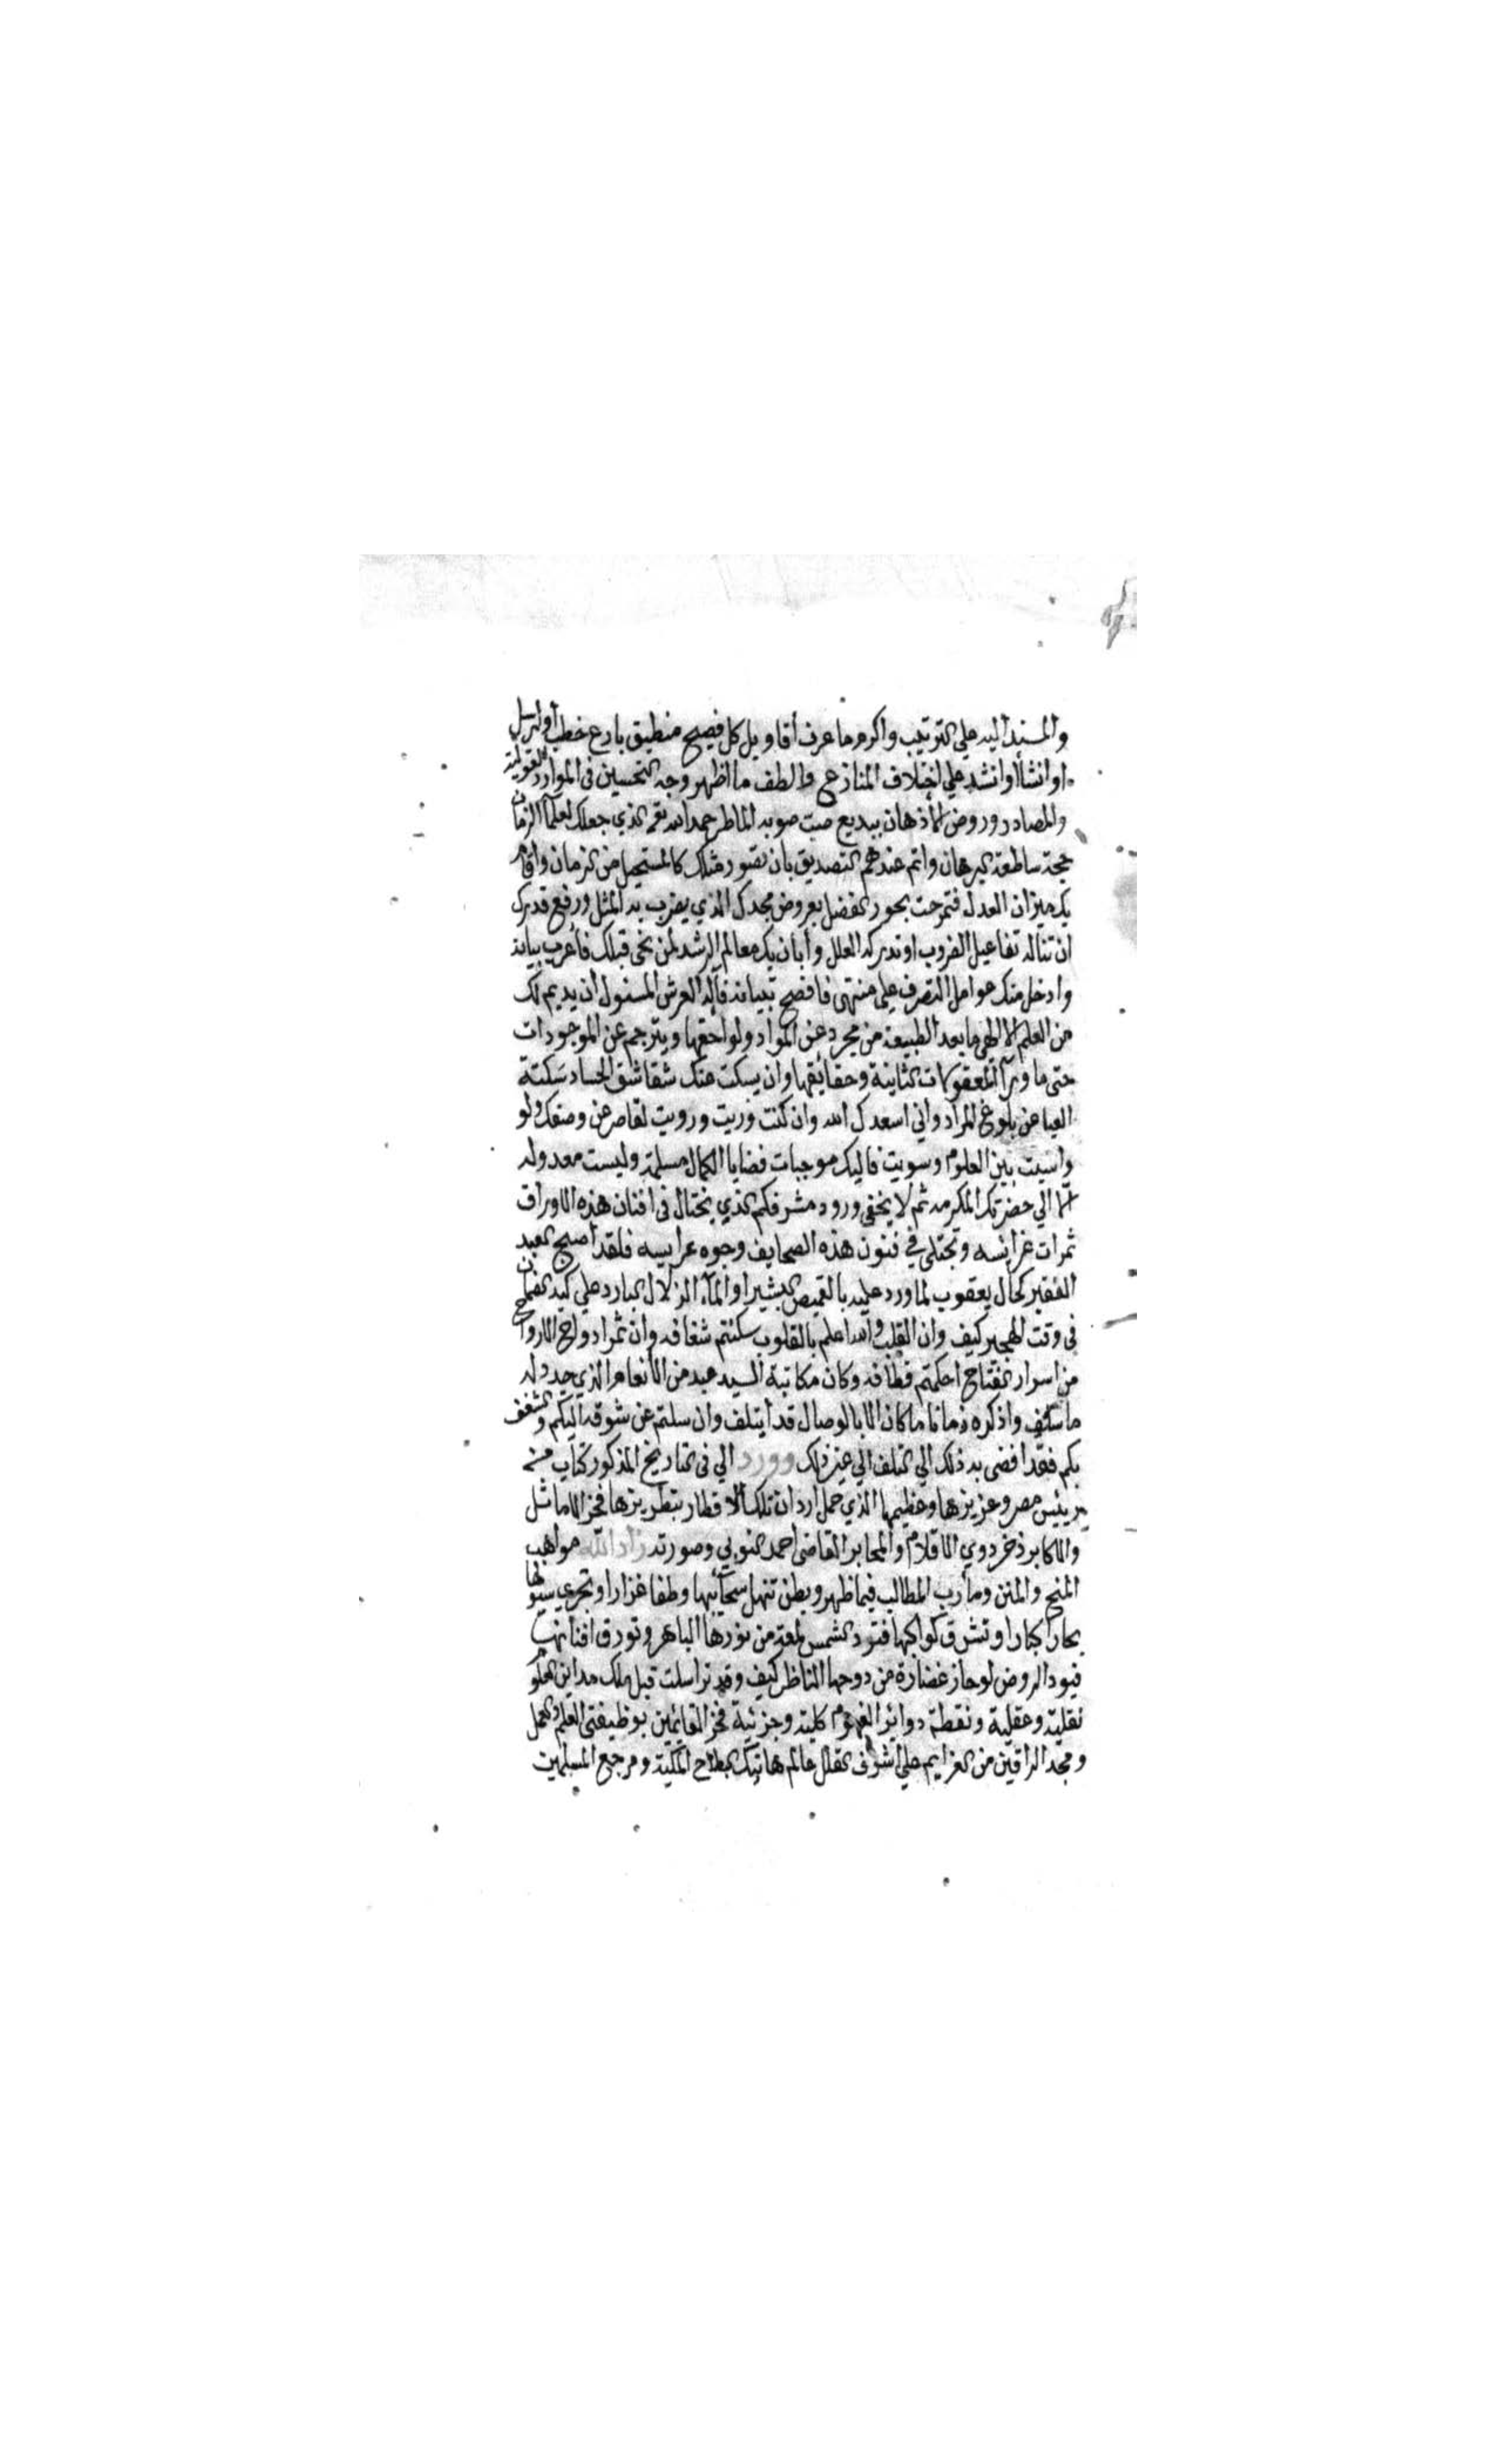 والمسند اليه علي الترتيب واكرم ما عرف أقاويل كل فصيح منطيق بارع خطب أو ترسل
او انشأ أو انشد علي اختلاف المنازع والطف ما اظهر وجه التحسين في الموارد القولية
والمصادر وروض الأذهان ببديع صيت صوبه الماطر حمد الله تعالى الذي جعلك لعلمآ الزمان
حجة ساطعة البرهان واتم عندهم التصديق بان تصور مثلك كالمستحيل من الزمان واقام
بك ميزان العدل فتموجت بحور الفضل بعروض مجدك الذي يضرب به المثل ورفع قدرك
ان تناله تفاعيل الضروب او تدركه العلل وأبان بك معالم الرشد لمن نحى قبلك فأعرب بيانه
وادخل منك عوامل التصرف علي منتهى فافصح تبيانه فآله العرش المسئول أن يديم لك
من العلم الالهي ما بعد الطبيعة من مجرد عن المواد ولواحقها ويترجم عن الموجودات
حتى ما ورآ المعقولات الثانية وحقايقها وان يسكت عنك شقاشق الحساد سكتة
العيا عن بلوغ المراد واني اسعدك الله وان كنت وريت ورويت لقاصر عن وصفك ولو
واسيت بين العلوم وسويت فاليك موجبات قضايا الكمال مسلمة وليست معدوله
الا الي حضرتك المكرمه ثم لا يخفى ورود مشرفكم الذي يختال في افنان هذه الاوراق
ثمرات غرايسه وتجتلى في فنون هذه الصحايف وجوه عرايسه فلقد اصبح العبد
الفقير كحال يعقوب لما ورد عليه بالقميص البشير او المآء الزلال البارد علي كبد الضمان
في وقت الهجير كيف وان القلب والله اعلم بالقلوب سكنتم شغافه وان ثمر ادواح الارواح
من اسرار المفتاح احكمتم قطافه وكان مكاتبة السيد عبده من الأنعام الذي جدد له
ما سلف واذكره زمانا ما كان الا بالوصال قد أيتلف وان سلتم عن شوقه اليكم والشغف
بكم فقد افضى به ذلك الي التلف الي غير ذلك وورد الي في التاريخ المذكور كتاب من
رييس مصر وعزيزها وعظيمها الذي جمل اردان تلك الأقطار بتطريزها فخر الاماثل
والاكابر ذخر ذوي الاقلام والمحابر القاضي احمد النوبي وصورته زاد الله مواهب
المنح والمنن ومأرب المطالب فيما ظهر وبطن تنهل سحآئبها وطفا غزارا وتجري سيولها
بحارا كبارا وتشرق كواكبها فتود الشمس لمعة من نورها الباهر وتورق افنانها
فيود الروض لو حاز غضارة من دوحها الناظر كيف وقد تراسلت قبل ملك مداين العلوم
نقلية وعقلية ونقطة دوائر الفهوم كلية وجزئية فخر القايمين بوظيفتي العلم والعمل
ومجد الراقين من العزايم علي اشرف القلل عالم هاتيك البطاح المكية ومرجع المسلمين